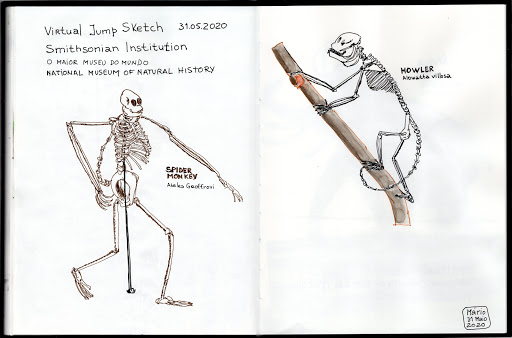 Virtual Jump Sketch 31.05.2020
Smithsonian Institution
O MAIOR MUSEU DO MUNDO
NATIONAL MUSEUM OF NATURAL HISTORY
SPIDER
MONKEY
Ateles Geoffroyi
HOWLER
Alouatta villosa
Mário
31 Maio
2020